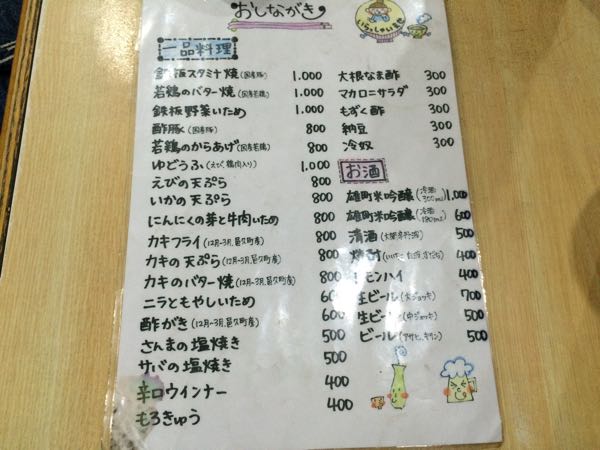 おしながき
いらっしゃいませ
一品料理
鉄板スタミナ焼(国産豚) 1.000
若鶏のバター焼(国産若鶏) 1.000
鉄板野菜いため 1.000
酢豚(国産豚) 800
若鶏のからあげ(国産若鶏) 800
ゆどうふ(えび、鶏肉入り) 1.000
えびの天ぷら 800
いかの天ぷら 800
にんにくの芽と牛肉いため 800
カキフライ(12月~3月、邑久町産) 800
カキの天ぷら(12月~3月、邑久町産) 800
カキのバター焼(12月~3月、邑久町産) 800
ニラともやしいため 600
酢がき(12月~3月、邑久町産) 600
さんまの塩焼き 500
サバの塩焼き 500
辛口ウインナー 400
もろきゅう 400
大根なま酢 300
マカロニサラダ 300
もずく酢 300
納豆 300
冷奴 300
お酒
雄町米吟醸(冷酒300ml) 1.000
雄町米吟醸(冷酒180ml) 600
清酒 500
焼酎 400
レモンハイ 400
生ビール(大ジョッキ) 700
生ビール(中ジョッキ) 500
ビール(アサヒ、キリン) 500